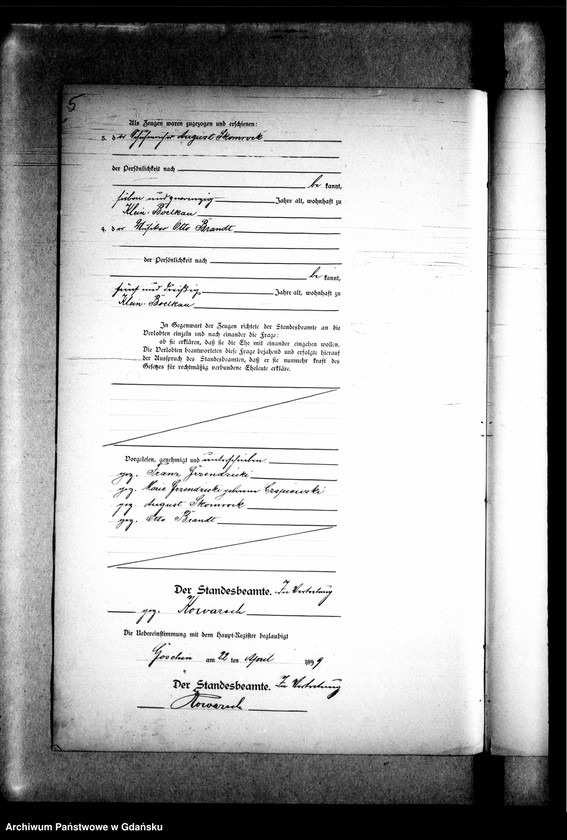 5
Als Zeugen waren zugezogen und erschienen:
3. der Schuhmacher August Skomrock
der Persönlichkeit nach
be kannt,
sieben und zwanzig Jahre alt, wohnhaft zu
Klein-Boelkau
4. der Musiker Otto Brandt
der Persönlichkeit nach
be kannt,
fünf und dreißig Jahre alt, wohnhaft zu
Klein-Boelkau
In Gegenwart der Zeugen richtete der Standesbeamte an die
Verlobten einzeln und nach einander die Frage:
ob sie erklären, daß sie die Ehe mit einander eingehen wollen.
Die Verlobten beantworteten diese Frage bejahend und erfolgte hierauf
der Ausspruch des Standesbeamten, daß er sie nunmehr kraft des
Gesetzes für rechtmäßig verbundene Eheleute erkläre.
Vorgelesen, genehmigt und unterschrieben
gez. Franz
gez. Marie geborene
gez. August Skomrock
gez. Otto Brandt
Der Standesbeamte. In Vertretung
gez. Kowarsch
Die Uebereinstimmung mit dem Haupt-Register beglaubigt
am 22 ten April 1899
Der Standesbeamte. In Vertretung
Kowarsch
Archiwum Państwowe w Gdańsku